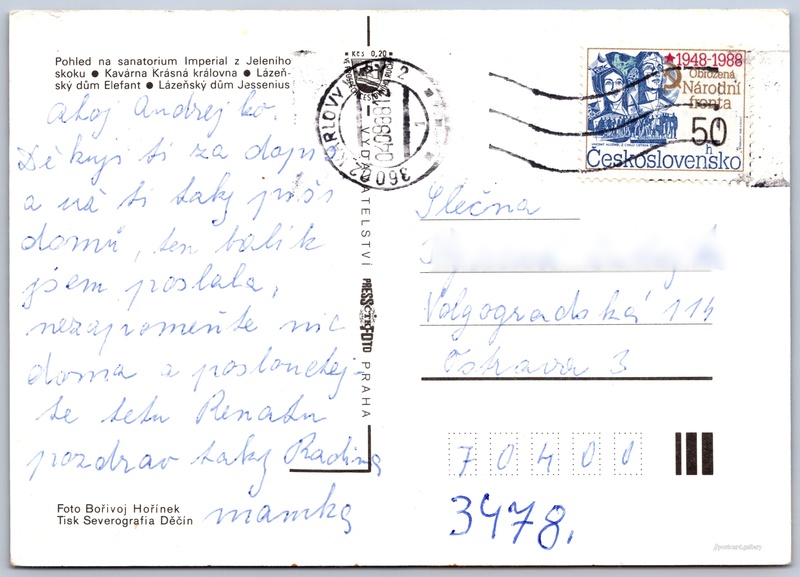 Pohled na sanatorium Imperial z Jeleního
skoku ● Kavárna Krásná královna ● Lázeň-
ský dům Elefant ● Lázeňský dům Jessenius
ahoj Andrejko.
Děkuji ti za dopis
a už ti taky píši
domů, ten balík
jsem poslala,
nezapomeňte nic
doma a poslouchej-
te tetu Renatu
pozdrav taky Radima
mamka
Foto Bořivoj Hořínek
Tisk Severografia Děčín
Kčs 0,20
PRESSFOTO
PRAHA
KARLOVY VARY 2
360 02
1948-1988
Obrozená
Národní
fronta
50
h
Československo
Slečna
Volgogradská 114
Ostrava 3
70400
3478.
//postcard.gallery